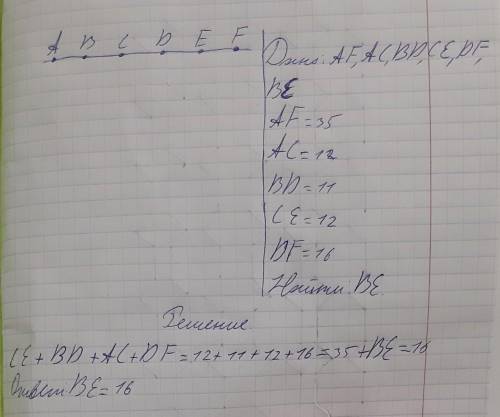 A B C D E F
Дано: AF, AC, BD, CE, DF,
BE
AF = 35
AC = 12
BD = 11
CE = 12
DF = 16
Найти BE
Решение
CE + BD + AC + DF = 12 + 11 + 12 + 16 = 35 + BE = 16
Ответ BE = 16